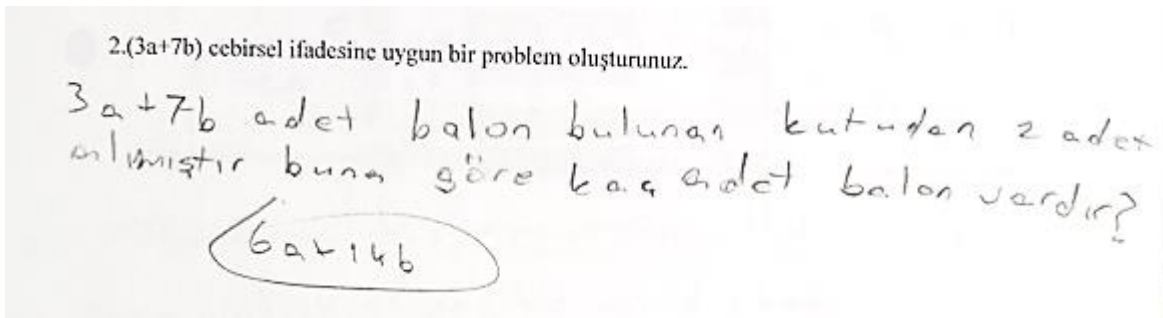 2.(3a+7b) cebirsel ifadesine uygun bir problem oluşturunuz.
3a+7b adet balon bulunan kutudan 2 adet
alımıştır buna göre kaç adet balon vardır?
6a+14b